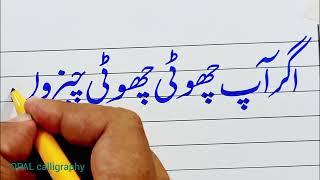 اگر آپ چھوٹی چھوٹی چیزوں
OPAL calligraphy